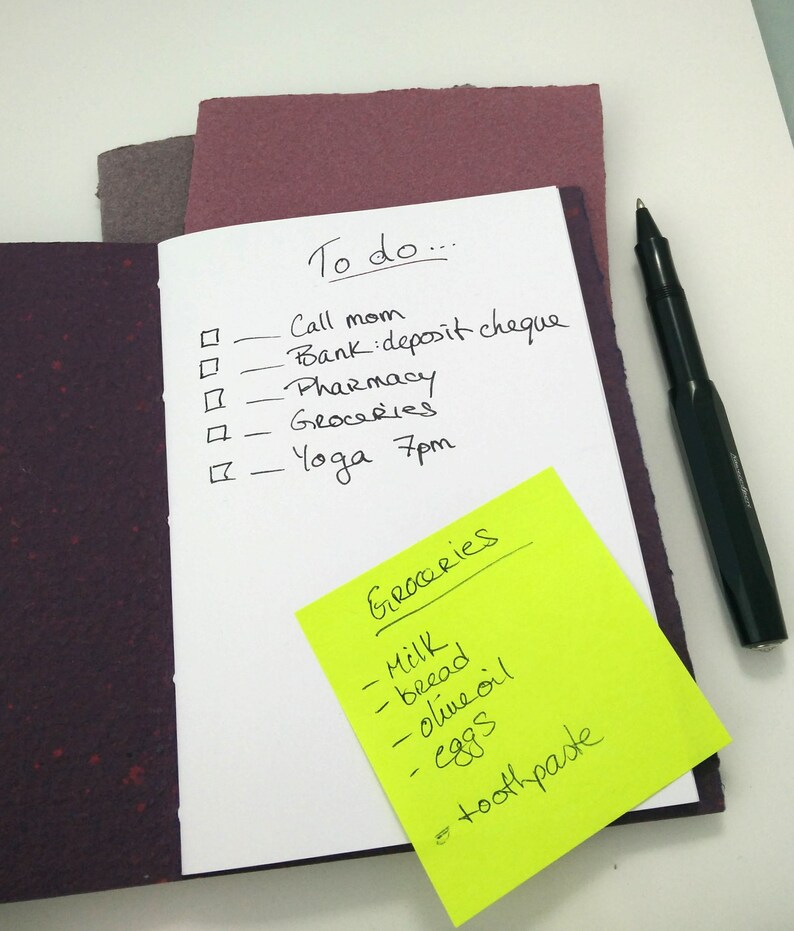 To do...
☐ — Call mom
☐ — Bank: deposit cheque
☐ — Pharmacy
☐ — Groceries
☐ — Yoga 7pm
Groceries
- Milk
- bread
- olive oil
- eggs
- toothpaste